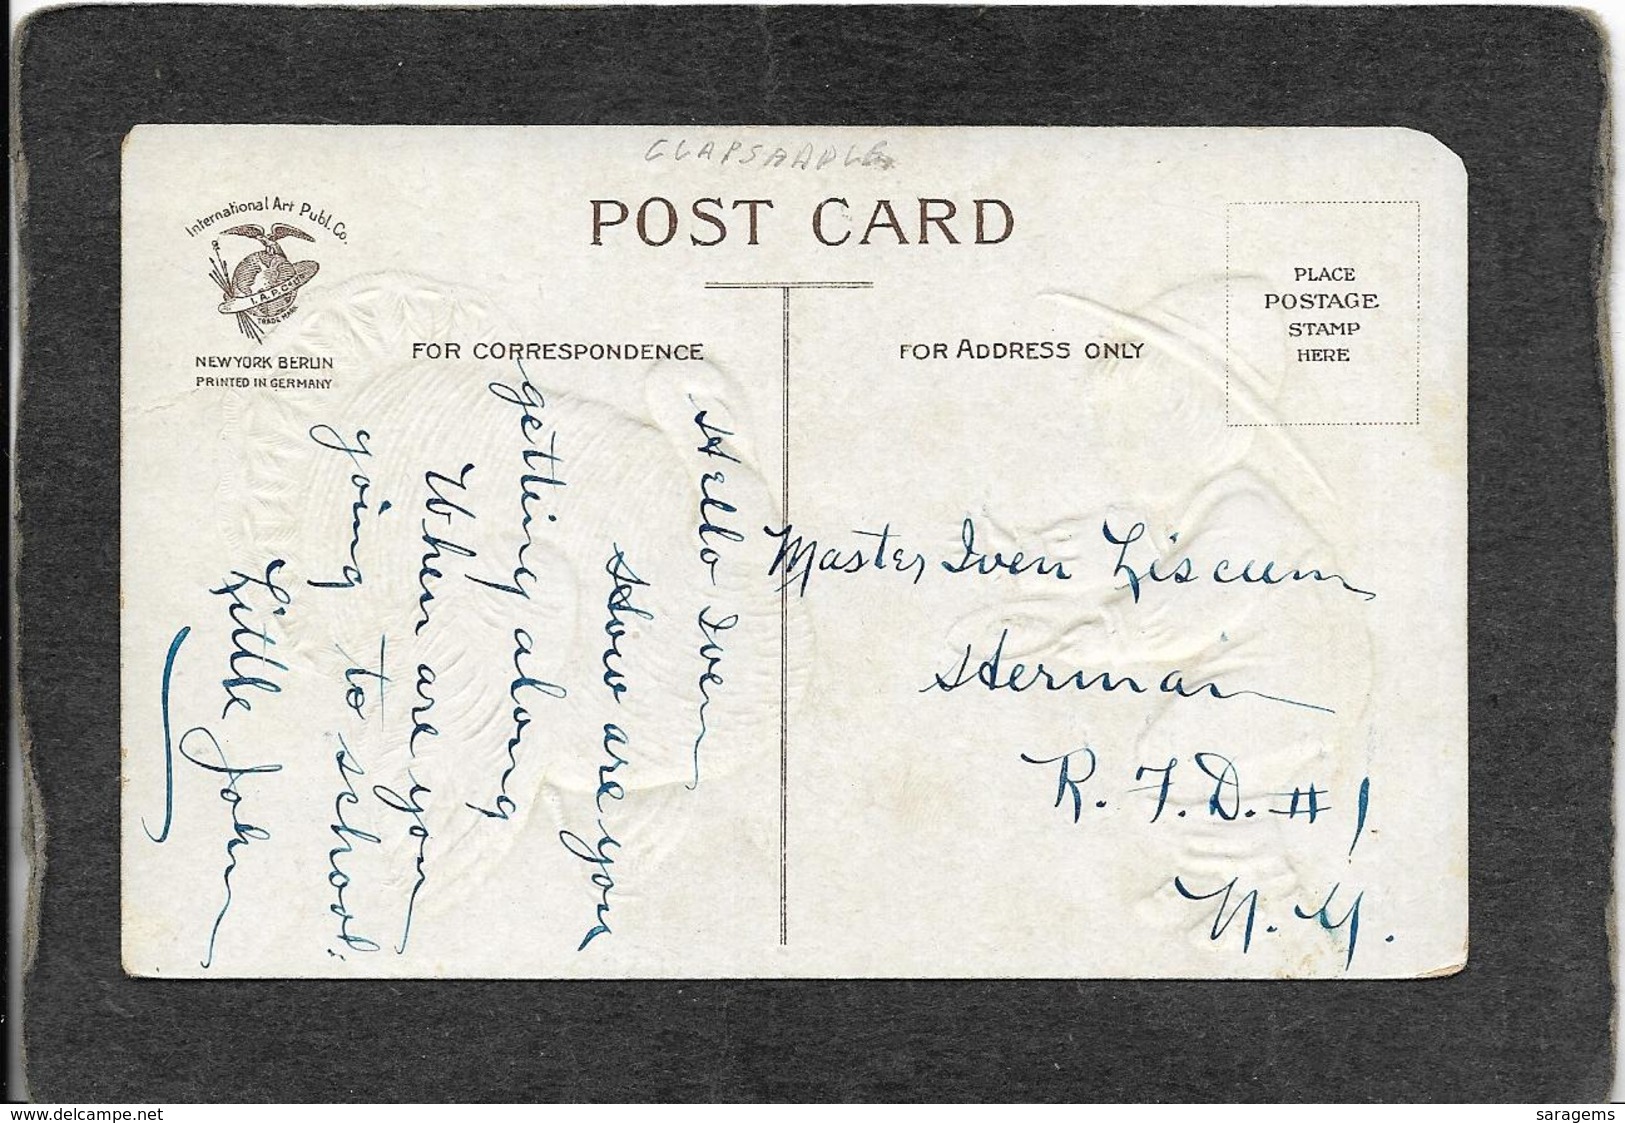 CLAPSADDLE
POST CARD
International Art Publ. Co.
I. A. P. Co.
TRADE MARK
NEW YORK BERLIN
PRINTED IN GERMANY
FOR CORRESPONDENCE
FOR ADDRESS ONLY
PLACE
POSTAGE
STAMP
HERE
Hello Iven
How are you
getting along
When are you
going to school.
Little John
Master Iven Liscum
Herman
R. F. D. # 1
N. Y.
www.delcampe.net
saragems